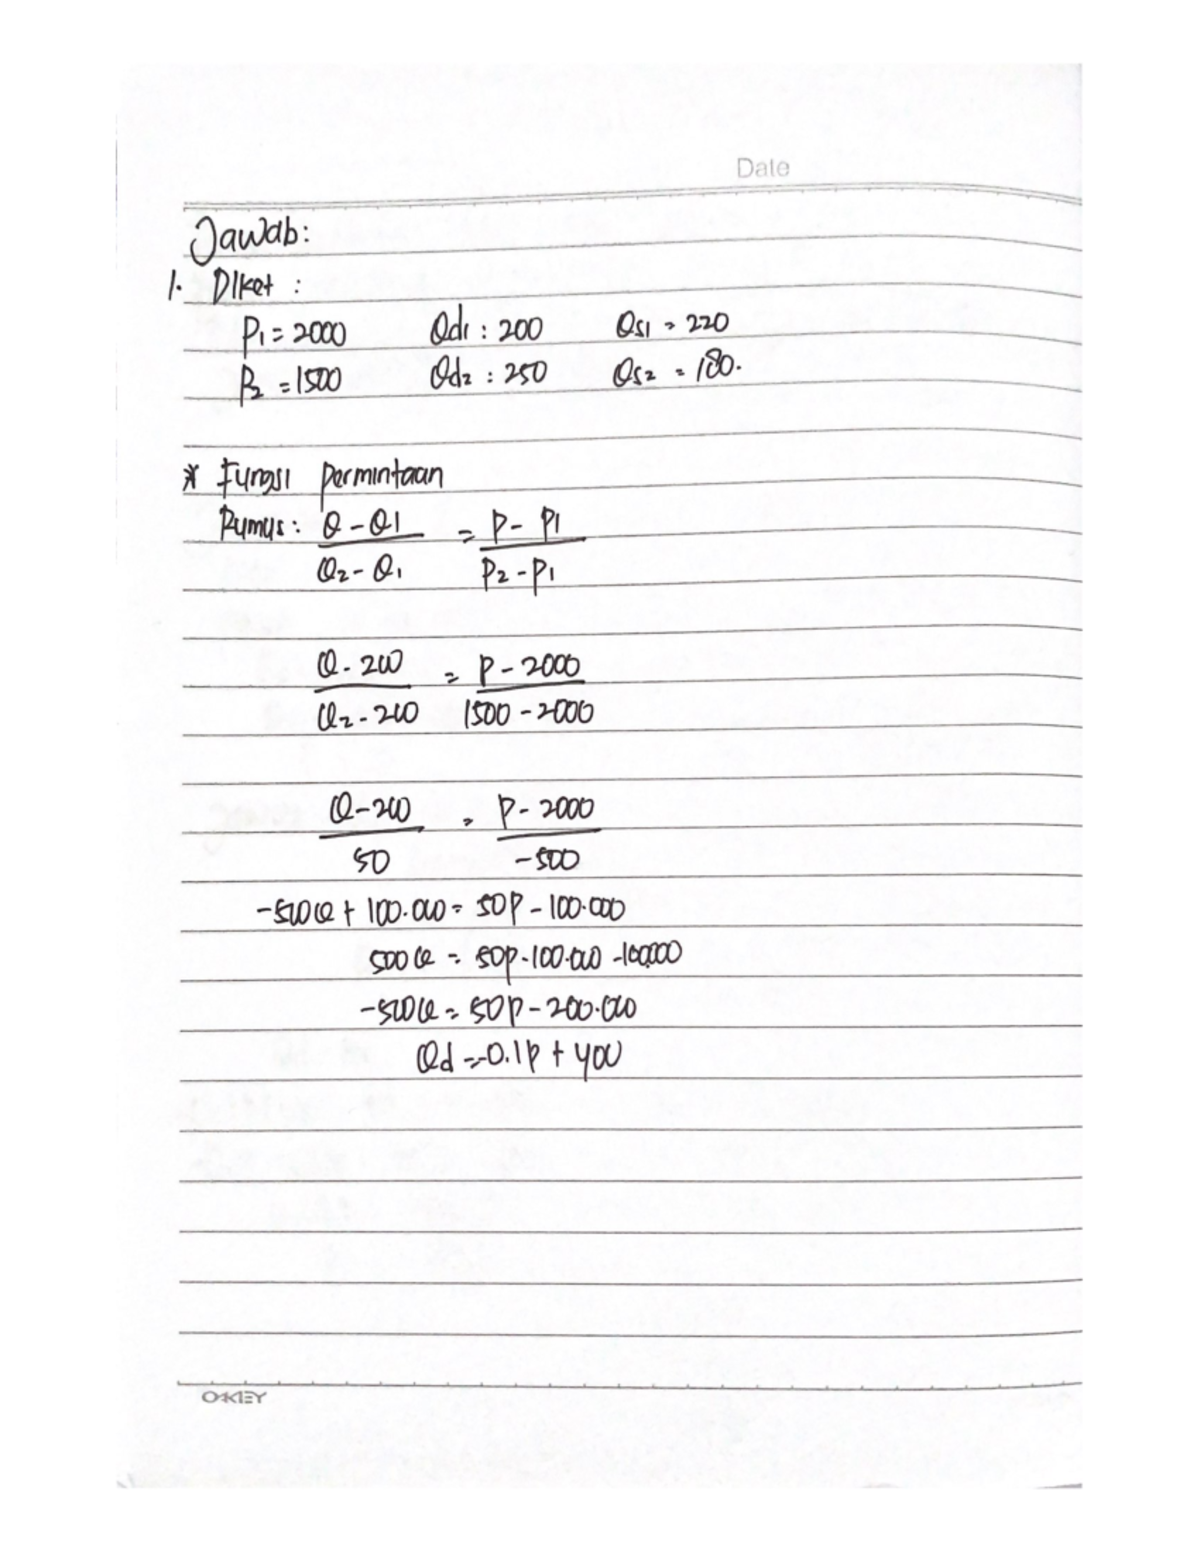 Date
Jawab:
1. Diket :
P1 = 2000 Qd1 : 200 Qs1 = 220
P2 = 1500 Qd2 : 250 Qs2 = 180.
* Fungsi permintaan
Rumus: Q - Q1 = P - P1
Q2 - Q1 P2 - P1
Q - 200 = P - 2000
Q2 - 200 1500 - 2000
Q - 200 = P - 2000
50 -500
-500Q + 100.000 = 50P - 100.000
500Q = 50P - 100.000 - 100.000
-500Q = 50P - 200.000
Qd = -0.1P + 400
OKEY